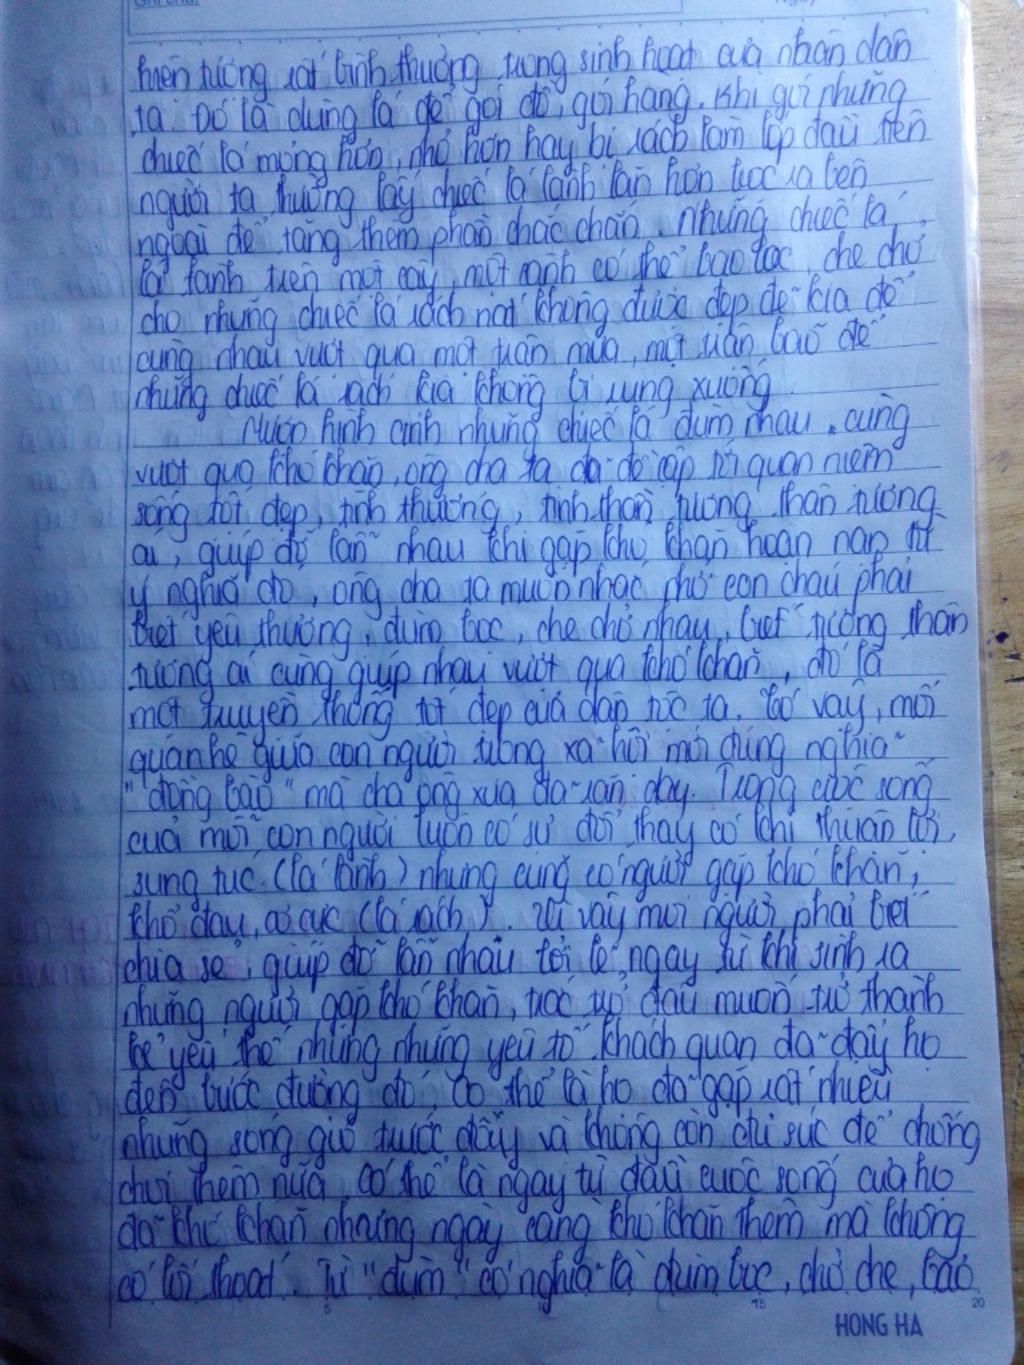 Ghi chú:
hiện tượng rất bình thường trong sinh hoạt của nhân dân
ta. Đó là dùng lá để gói đồ, gói hàng. Khi gói những
chiếc lá mỏng hơn, nhỏ hơn hay bị rách làm lớp đầu tiên
người ta thường lấy chiếc lá lành lặn hơn bọc ra bên
ngoài để tăng thêm phần chắc chắn. Những chiếc lá,
lá lành trên một cây, một cành có thể bao bọc, che chở
cho những chiếc lá rách nát không được đẹp đẽ kia để
cùng nhau vượt qua một trận mưa, một trận bão để
những chiếc lá rách kia không bị rụng xuống
Mượn hình ảnh những chiếc lá đùm nhau, cùng
vượt qua khó khăn, ông cha ta đã đề cập tới quan niệm
sống tốt đẹp, tình thương, tinh thần tương thân tương
ái, giúp đỡ lẫn nhau khi gặp khó khăn hoạn nạn từ
ý nghĩa đó, ông cha ta muốn nhắc nhở con cháu phải
biết yêu thương, đùm bọc, che chở nhau, biết tương thân
tương ái cùng giúp nhau vượt qua khó khăn, đó là
một truyền thống tốt đẹp của dân tộc ta. Có vậy, mối
quan hệ giữa con người trong xã hội mới đúng nghĩa
"đồng bào" mà cha ông xưa đã răn dạy. Trong cuộc sống
của mỗi con người luôn có sự đổi thay có khi thuận lợi,
sung túc (lá lành) nhưng cũng có người gặp khó khăn,
khổ đau, cơ cực (lá rách). Vì vậy mọi người phải biết
chia sẻ, giúp đỡ lẫn nhau bởi lẽ, ngay từ khi sinh ra
những người gặp khó khăn, trắc trở đâu muốn trở thành
kẻ yếu thế nhưng những yếu tố khách quan đã đẩy họ
đến bước đường đó. Có thể là họ đã gặp rất nhiều
những sóng gió trước đây và không còn đủ sức để chống
chọi thêm nữa có thể là ngay từ đầu cuộc sống của họ
đã khó khăn nhưng ngày càng khó khăn thêm mà không
có lối thoát. Từ "đùm" có nghĩa là đùm bọc, chở che, bảo
5
10
15
20
HONG HA